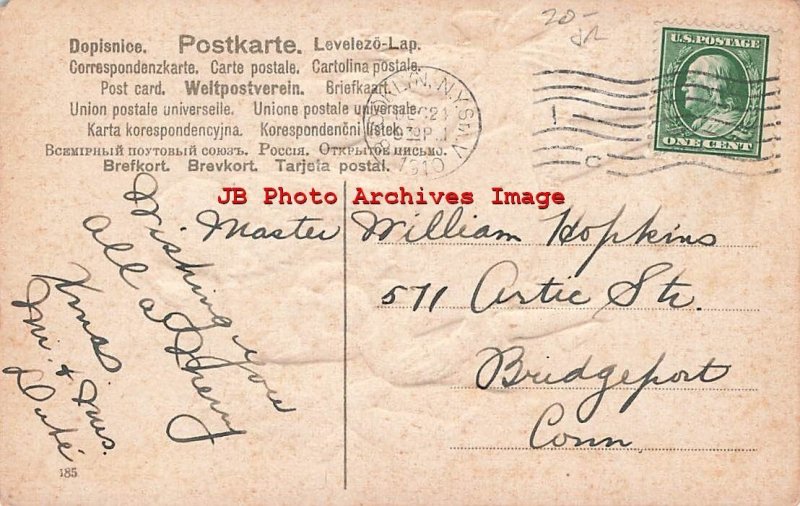 20-
Dopisnice. Postkarte. Levelező-Lap.
Correspondenzkarte. Carte postale. Cartolina postale.
Post card. Weltpostverein. Briefkaart.
Union postale universelle. Unione postale universale.
Karta korespondencyjna. Korespondenční lístek.
Всемірный почтовый союзъ. Россія. Открытое письмо.
Brefkort. Brevkort. Tarjeta postal.
N.Y. STA. V
DEC 21
930 P
1910
1
C
U.S. POSTAGE
ONE CENT
JB Photo Archives Image
Master William Hopkins
511 Artic Str.
Bridgeport
Conn
Wishing you
all a Merry
Xmas.
Mr. & Mrs.
185